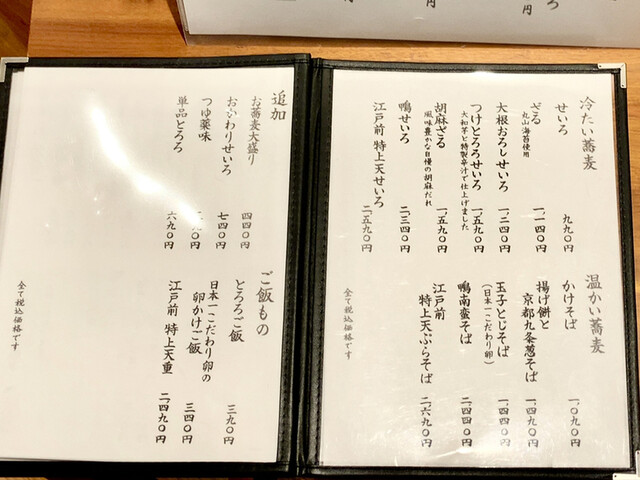 冷たい蕎麦
せいろ 九九〇円
ざる 一、一四〇円
丸山海苔使用
大根おろしせいろ 一、二四〇円
つけとろろせいろ 一、五九〇円
大和芋と特製辛汁で仕上げました
胡麻ざる 一、五九〇円
風味豊かな自慢の胡麻だれ
鴨せいろ 二、三四〇円
江戸前 特上天せいろ 二、五九〇円
温かい蕎麦
かけそば 一、〇九〇円
揚げ餅と
京都九条葱そば 一、四九〇円
玉子とじそば 一、四四〇円
(日本一こだわり卵)
鴨南蛮そば 二、四四〇円
江戸前
特上天ぷらそば 二、六九〇円
全て税込価格です
追加
お蕎麦大盛り 四四〇円
おかわりせいろ 七四〇円
つゆ薬味 〇円
単品とろろ 六九〇円
ご飯もの
とろろご飯 三九〇円
日本一こだわり卵の
卵かけご飯 三四〇円
江戸前 特上天重 二、四九〇円
全て税込価格です